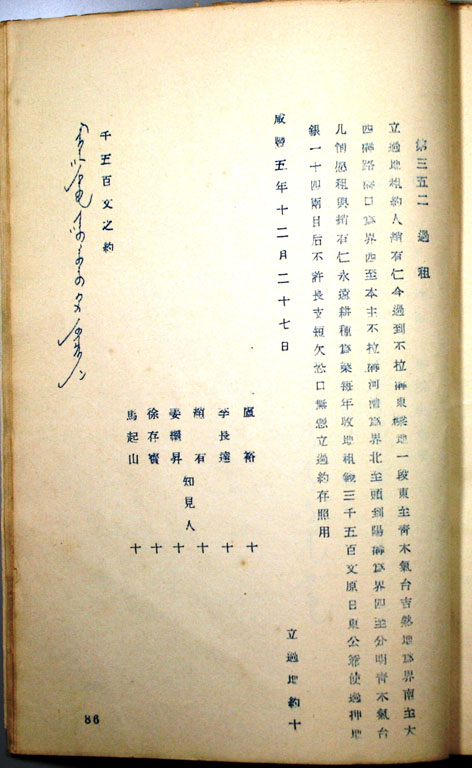 第三五二　過租
立過地租約人趙石仁今過到不拉溝東梁地一段東至青木氣台吉熱地為界南至大
西溝路溝口為界西至本主不拉溝河漕為界北至頭到陽溝為界四至分明青木氣台
儿情愿租與趙石仁永遠耕種為業每年收地租錢三千五百文原日東公爺使過押地
銀一十四兩日后不許長支短欠恐口無憑立過約存照用
咸豐五年十二月二十七日
立過地約十
盧裕　十
李長遠　十
趙石　十
知見人
姜纘昇　十
徐存寶　十
馬起山　十
千五百文之約
86